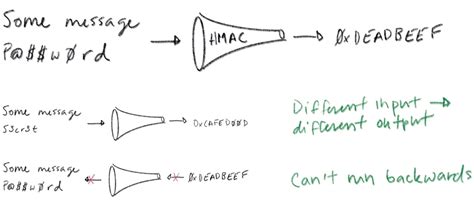 Some message
P@$$wØrd
HMAC
ØxDEADBEEF
Some message
S3cr3t
ØxCAFEDØØD
Different input →
different output
Some message
P@$$wØrd
ØxDEADBEEF
Can't run backwards